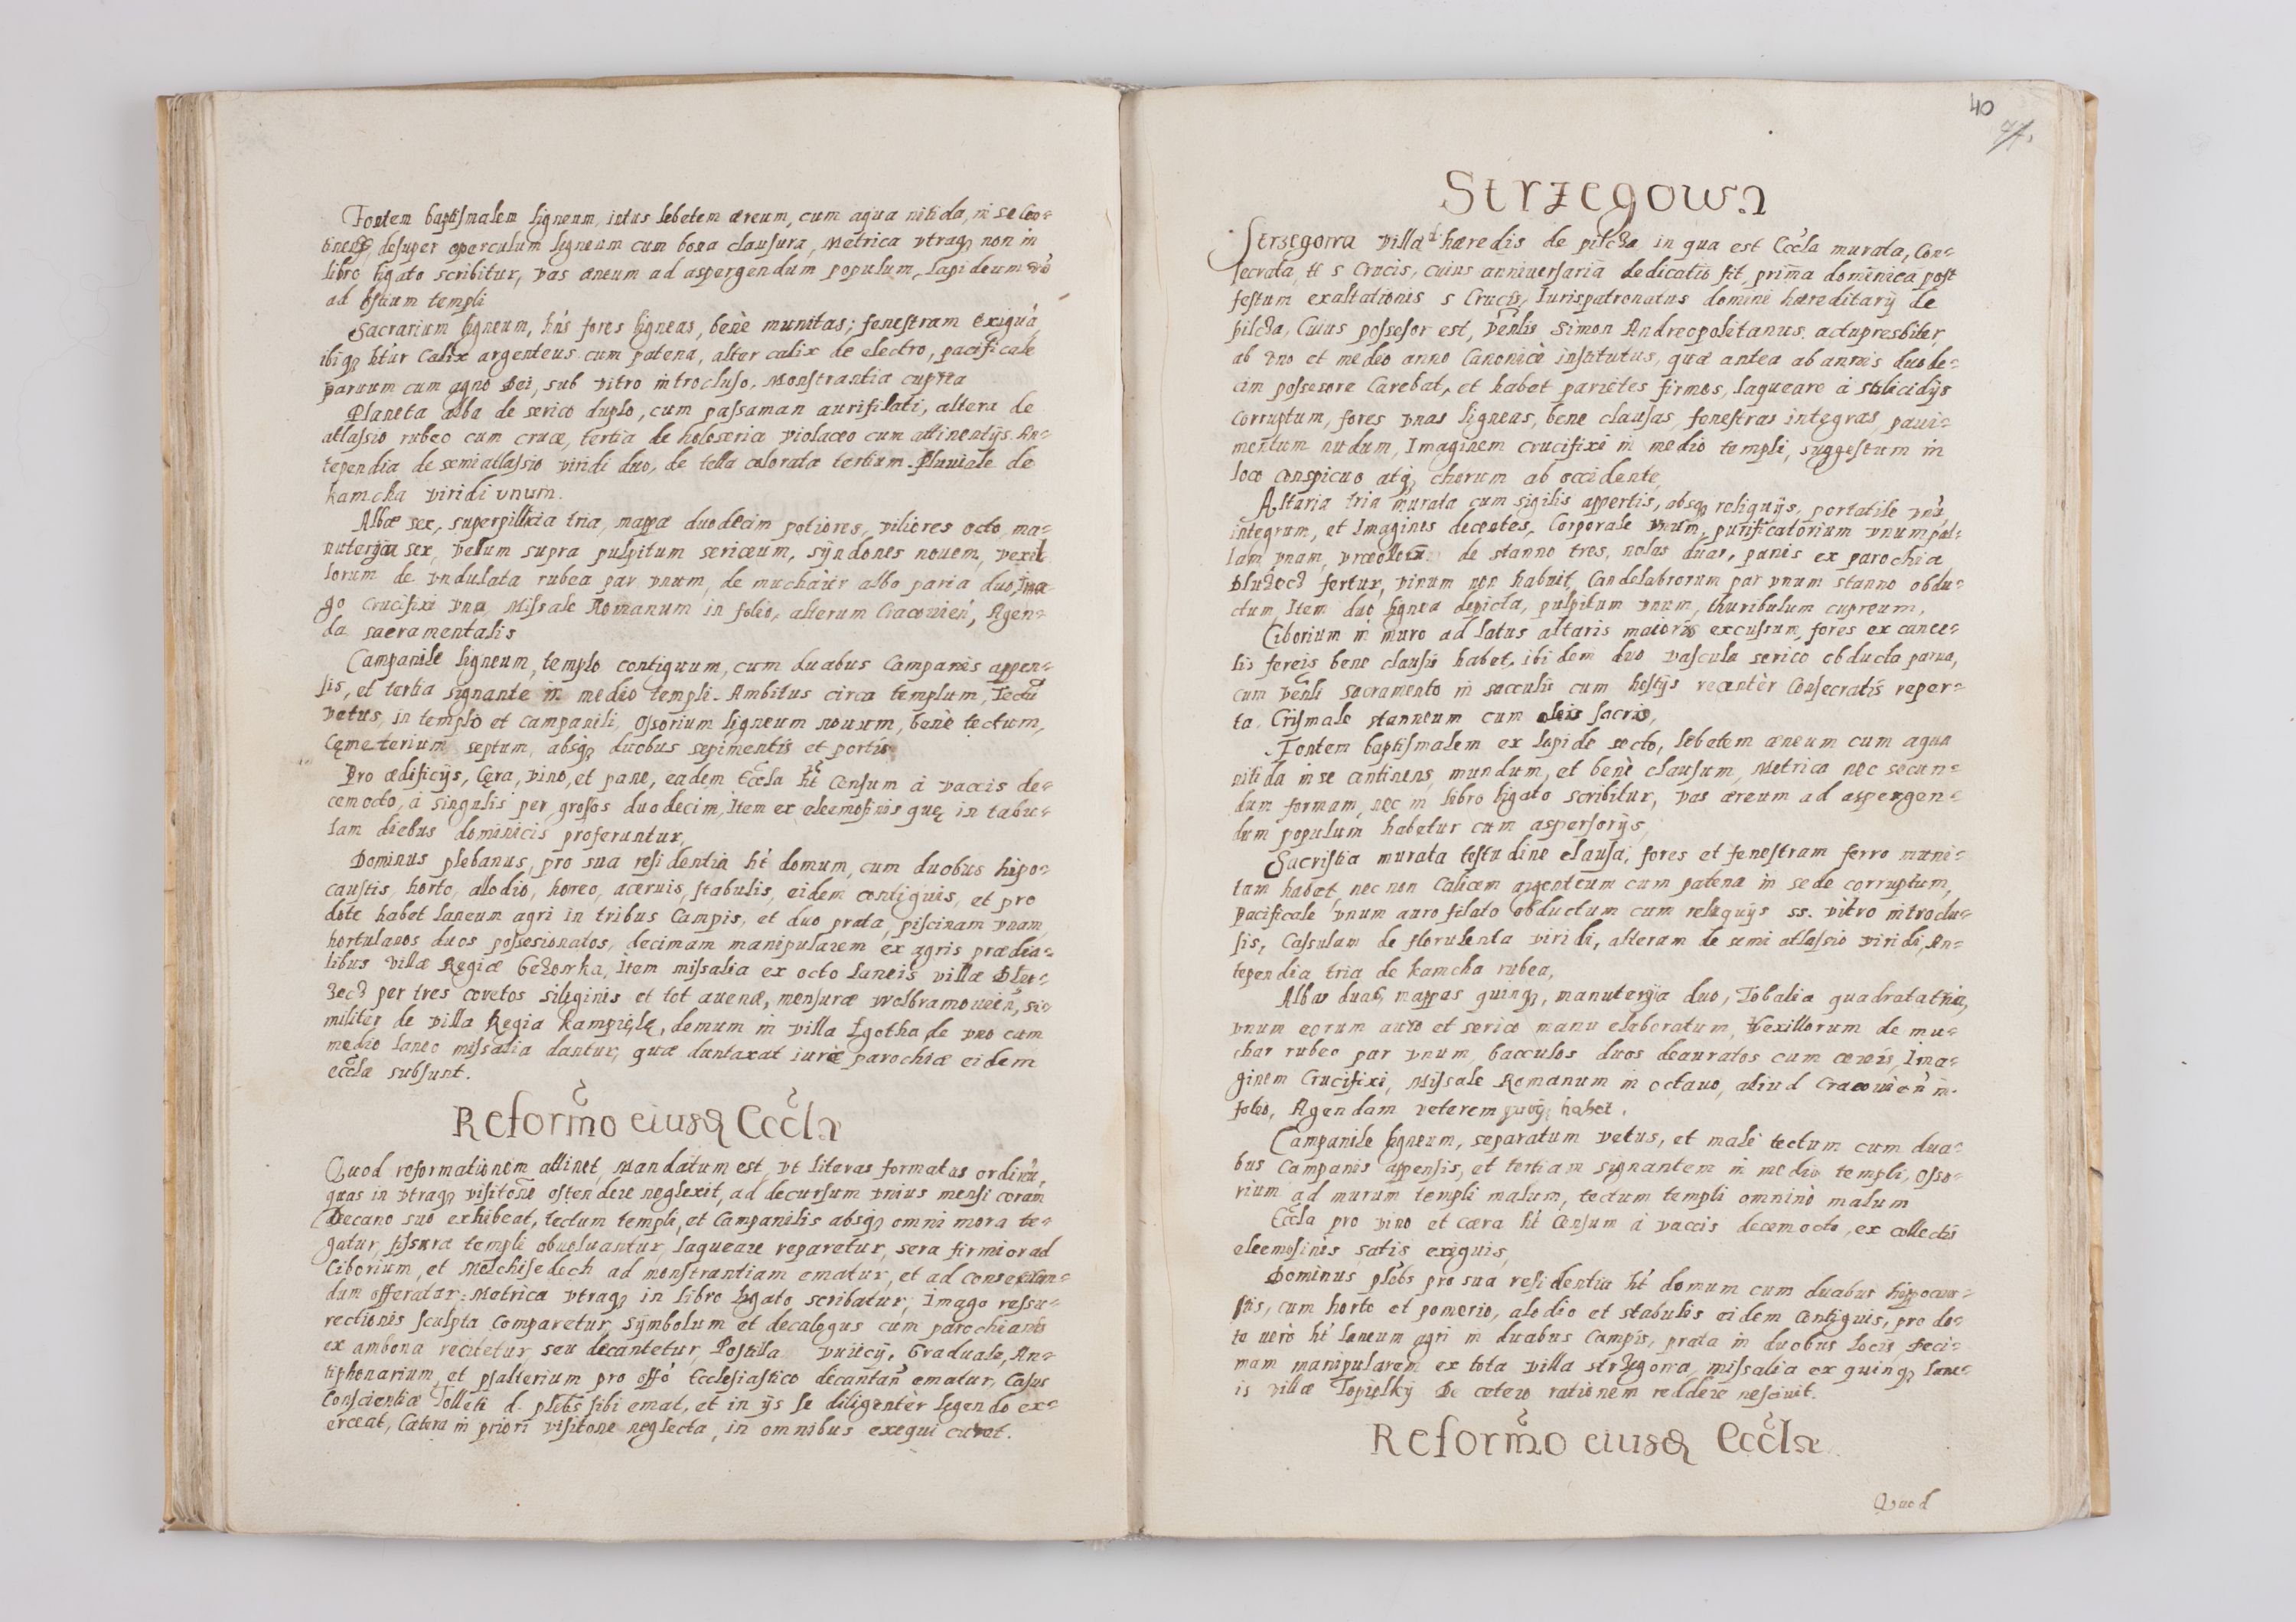 Fontem baptismalem ligneum, intus lebetem æreum, cum aqua nitida, in se con=
tinens, desuper operculum ligneum cum bona clausura, Metrica vtraq3 non in
libro ligato scribitur, vas æneum ad aspergendum populum, lapideum
ad ostium templi
Sacrarium ligneum, hns fores ligneas, benè munitas; fenestram exiguā,
ibiq3 htur Calix argenteus cum patena, alter calix de electro, pacificale
paruum cum agno Dei, sub vitro introcluso, Monstrantia cuprea
Planeta alba de serico duplo, cum passaman aurifilati, altera de
atlassio rubeo cum cruce, tertia de holoserico violaceo cum attinentijs. An=
tependia de semiatlassio viridi duo, de tella colorata tertium. Pluuiale de
kamcha viridi vnum.
Albæ sex, superpillicia tria, mappæ duodecim potiores, viliores octo, ma=
nuterija sex, Velum supra pulpitum sericeum, syndones nouem, vexil
lorum de vndulata rubea par vnum, de muchaiir albo paria duo, Ima=
go Crucifixi vna, Missale Romanum in folio, alterum Cracouien, Agen=
da sacramentalis
Campanile ligneum, templo contiguum, cum duabus Campanis appen=
sis, et tertia signante in medio templi. Ambitus circa templum, Tectū
vetus, in templo et campanili, Ossorium ligneum nouum, benè tectum,
Cęmeterium septum, absq3 duobus sepimentis et portis
Pro ædificijs, Cęra, vino, et pane, eadem Eccla ht Censum à vaccis de=
cem octo, à singulis per grosos duodecim, Item ex eleemosinis quę in tabu=
lam diebus dominicis proferuntur,
Dominus plebanus, pro sua residentia ht domum, cum duobus hipo=
caustis, horto, allodio, horeo, aceruis, stabulis, eidem contiguis, et pro
dote habet laneum agri in tribus Campis, et duo prata, piscinam vnam,
hortulanos duos possesionatos, decimam manipularem ex agris prædia=
libus villæ Regiæ Gezowka, Item missalia ex octo laneis villæ
per tres coretos siliginis et tot auenæ, mensuræ Wolbramouien, si=
militer de villa Regia kampielę, demum in villa Lgotha de vno cum
medio laneo missalia dantur, quæ duntaxat iure parochiæ eidem
ecclæ subsunt.
Reformo eiusq3 Ecclæ
Quod reformationem attinet, Mandatum est, vt literas formatas ordinū,
quas in vtraq3 visitone ostendere neglexit, ad decursum vnius mensi coram
Decano suo exhibeat, tectum templi, et Campanilis absq3 omni mora te=
gatur, fissuræ templi obuoluantur, laqueare reparetur, sera firmior ad
Ciborium, et Melchisedech ad monstrantiam ematur, et ad consecran=
dum offeratur. Metrica vtraq3 in libro ligato scribatur, Imago resur=
rectionis sculpta comparetur, symbolum et decalogus cum parochianis
ex ambona recitetur seu decantetur, Postilla Vuiecij, Graduale, An=
tiphonarium, et psalterium pro offo Ecclesiastico decantan ematur, Casus
Conscientiæ Tolleti d. plebs sibi emat, et in ijs se diligentèr legendo ex=
erceat, Cætera in priori visitone neglecta, in omnibus exequi curet.
40
Strzegowa
Strzegowa villa hæredis de pilcza in qua est Eccla murata, Con=
secrata, tt S Crucis, cuius anniuersaria dedicatio fit prima dominica post
festum exaltationis S Crucis, Iurispatronatus domini hæreditarij de
pilcza, Cuius possesor est, Venlis Simon Andreopolitanus actupresbiter
ab vno et medio anno Canonicè institutus, quæ antea ab annis duode=
cim possesore Carebat, et habet parietes firmos, laqueare à stilicidijs
corruptum, fores vnas ligneas, bene clausas, fenestras integras, paui=
mentum nudum, Imaginem crucifixi in medio templi, suggestum in
loco conspicuo atq3 chorum ab occidente,
Altaria tria murata cum sigilis appertis, absq3 reliquijs, portatile vnū
integrum, et Imagines decentes, Corporale vnum, purificatorium vnum pal=
lam vnam, vrceolorū de stanno tres, nolas duas, panis ex parochia
fertur, vinum non habuit, Candelabrorum par vnum stanno obdu=
ctum, Item duo lignea depicta, pulpitum vnum, thuribulum cupreum,
Ciborium in muro ad latus altaris maioris excussum, fores ex cance=
lis fereis bene clausis habet, ibidem duo vascula serico obducta parua,
cum Venli Sacramento in sacculis cum hostijs recentèr Consecratis reper=
ta, Crismale stanneum cum oleis sacris,
Fontem baptismalem ex lapide secto, lebetem æneum cum aqua
nitida in se continens, mundum, et benè clausum, Metrica nec secun=
dum formam, nec in libro ligato scribitur, vas æreum ad aspergen=
dum populum habetur cum aspersorijs,
Sacristia murata testudine clausa, fores et fenestram ferro muni=
tam habet, nec non Calicem argenteum cum patena in sede corruptum,
pacificale vnum auro filato obductum cum reliquijs ss. vitro introclu=
sis, Casulam de florulenta viridi, alteram de semi atlassio viridi, An=
tependia tria de kamcha rubea,
Albas duas, mappas quinq3, manuterija duo, Tobalia quadrata tria,
vnum eorum auro et serico manu elaboratum, Vexillorum de mu=
char rubeo par vnum, bacculos duos deauratos cum cereis, Ima=
ginem Crucifixi, Missale Romanum in octauo, aliud Cracouien in
folio, Agendam veterem quoq3 habet.
Campanile ligneum, separatum vetus, et malè tectum cum dua=
bus campanis appensis, et tertiam signantem in medio templi, Osso=
rium ad murum templi malum, tectum templi omninò malum
Eccla pro vino et cæra ht Censum à vaccis decem octo, ex collectis
eleemosinis satis exiguis,
Dominus plebs pro sua residentia ht domum cum duabus hippocau=
stis, cum horto et pomerio, alodio et stabulis eidem contiguis, pro do=
te uerò ht laneum agri in duabus Campis, prata in duobus locis, Deci=
mam manipularem ex tota villa strzegowa, missalia ex quinq3 lane=
is villæ Topielky De cætero rationem reddere nesciuit.
Reformo eiusq3 Ecclæ
Quod